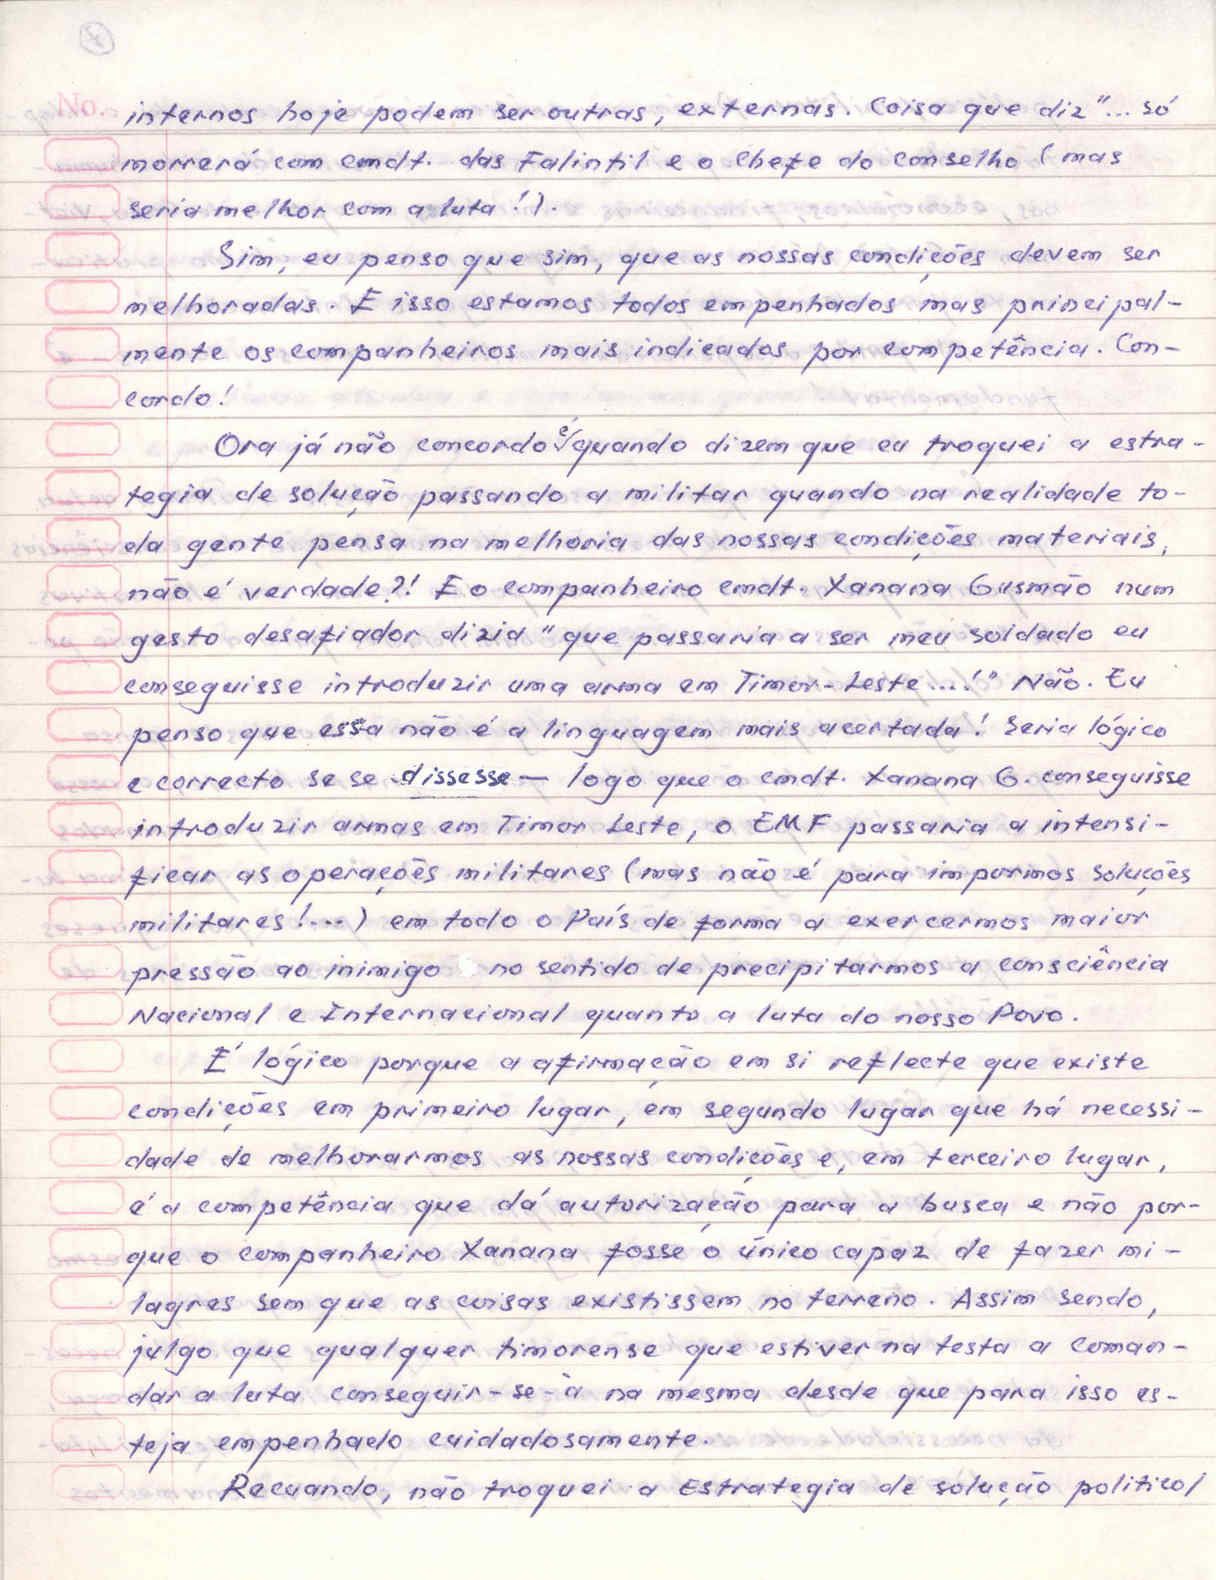 7
No.
internos hoje podem ser outras, externas. Coisa que diz "... só
morrerá com cmdt. das Falintil e o Chefe do Conselho (mas
seria melhor com a luta!).
Sim, eu penso que sim, que as nossas condições devem ser
melhoradas. E isso estamos todos empenhados mas principal-
mente os companheiros mais indicados por competência. Con-
cordo!
Ora já não concordo é quando dizem que eu troquei a estra-
tegia de solução passando a militar quando na realidade to-
da gente pensa na melhoria das nossas condições materiais,
não é verdade?! E o companheiro cmdt. Xanana Gusmão num
gesto desafiador dizia "que passaria a ser meu soldado eu
conseguisse introduzir uma arma em Timor-Leste...!" Não. Eu
penso que essa não é a linguagem mais acertada! Seria lógico
e correcto se se dissesse — logo que o cmdt. Xanana G. conseguisse
introduzir armas em Timor Leste, o EMF passaria a intensi-
ficar as operações militares (mas não é para impormos soluções
militares!...) em todo o País de forma a exercermos maior
pressão ao inimigo no sentido de precipitarmos a consciência
Nacional e Internacional quanto a luta do nosso Povo.
É lógico porque a afirmação em si reflecte que existe
condições em primeiro lugar, em segundo lugar que há necessi-
dade de melhorarmos as nossas condições e, em terceiro lugar,
é a competência que dá autorização para a busca e não por-
que o companheiro Xanana fosse o único capaz de fazer mi-
lagres sem que as coisas existissem no terreno. Assim sendo,
julgo que qualquer timorense que estiver na testa a coman-
dar a luta conseguir-se-à na mesma desde que para isso es-
teja empenhado cuidadosamente.
Recuando, não troquei a Estrategia de solução politico/